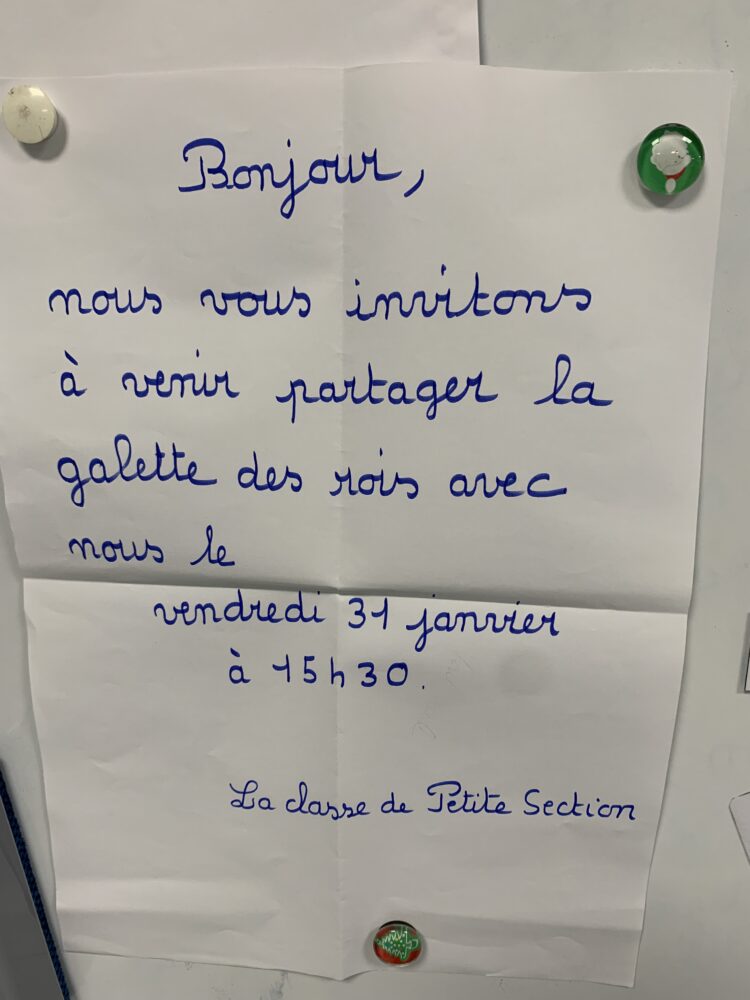 Bonjour,
nous vous invitons
à venir partager la
galette des rois avec
nous le
vendredi 31 janvier
à 15h30.
La classe de Petite Section